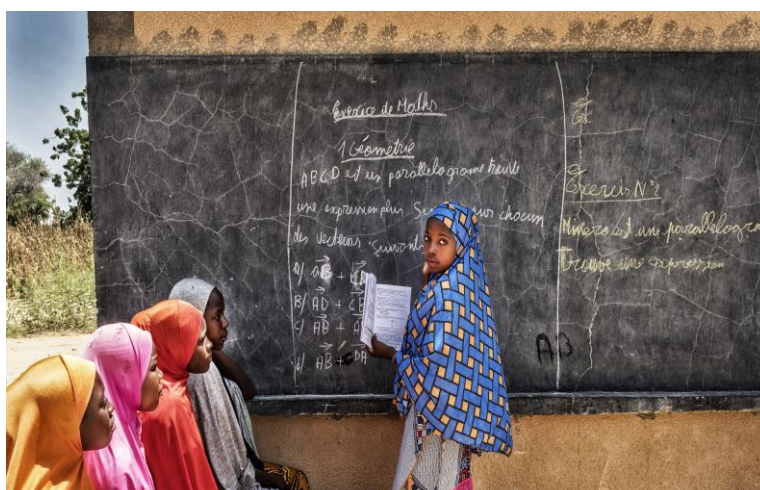 Exercice de Maths
1 Géometrie
ABCD est un parallelograme trouve
une expression plus chacun
des vecteurs suivant
a) AB +
B/ AD + CB
c) AB + A
d) AB + DA
AB
Exercis N°2
est une parallelogra
Trouve une expression